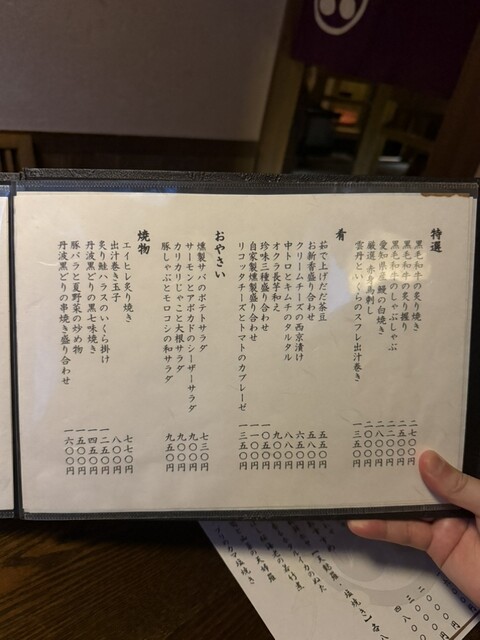 特選
黒毛和牛の炙り焼き 二七〇〇円
黒毛和牛の炙り握り 二五〇〇円
黒毛和牛のしゃぶしゃぶ 二一〇〇円
愛知県産 鰻の白焼き 二八〇〇円
厳選 赤身馬刺し 二〇〇〇円
雲丹といくらのスフレ出汁巻き 一三五〇円
肴
茹で上げだだ茶豆 五五〇円
お新香盛り合わせ 五八〇円
クリームチーズの西京漬け 六五〇円
中トロとキムチのタルタル 八八〇円
オクラ長芋和え 九〇〇円
珍味三種盛り合わせ 一〇五〇円
自家製燻製盛り合わせ 一一〇〇円
リコッタチーズとトマトのカプレーゼ 一三五〇円
おやさい
燻製サバのポテトサラダ 七三〇円
サーモンとアボカドのシーザーサラダ 九〇〇円
カリカリじゃこと大根サラダ 九〇〇円
豚しゃぶとモロコシの和サラダ 九五〇円
焼物
エイヒレ炙り焼き 七七〇円
出汁巻き玉子 八〇〇円
炙り鮭ハラスのいくら掛け 一二五〇円
丹波黒どりの黒七味焼き 一四五〇円
豚バラと夏野菜の炒め物 一五〇〇円
丹波黒どりの串焼き盛り合わせ 一六〇〇円